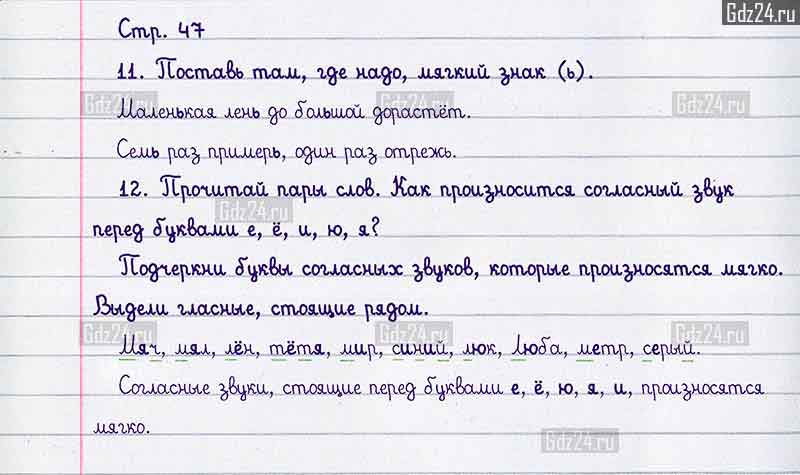 Gdz24.ru
Стр. 47
11. Поставь там, где надо, мягкий знак (ь).
Gdz24.ru Gdz24.ru Gdz24.ru
Маленькая лень до большой дорастёт.
Семь раз примерь, один раз отрежь.
12. Прочитай пары слов. Как произносится согласный звук
Gdz24.ru
перед буквами е, ё, и, ю, я?
Подчеркни буквы согласных звуков, которые произносятся мягко.
Выдели гласные, стоящие рядом.
Gdz24.ru Gdz24.ru Gdz24.ru
Мяч, мял, лён, тётя, мир, синий, люк, Люба, метр, серый.
Согласные звуки, стоящие перед буквами е, ё, ю, я, и, произносятся
мягко.
Gdz24.ru